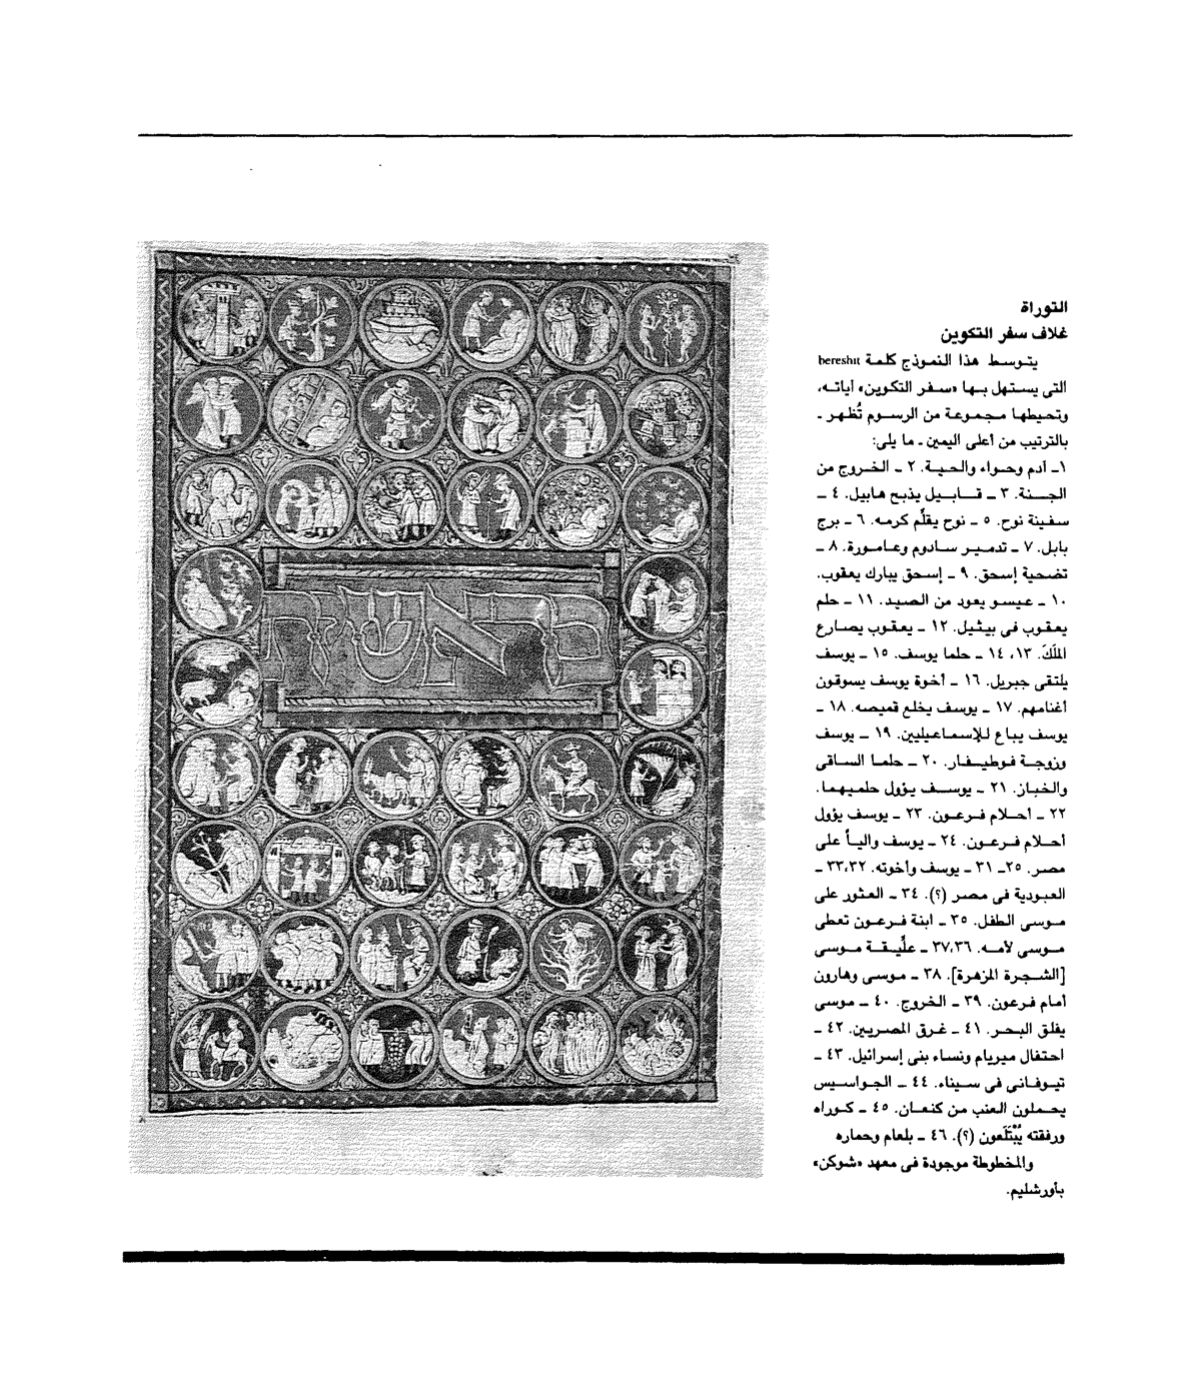 التوراة
غلاف سفر التكوين
يتوسط هذا النموذج كلمة bereshit
التى يستهل بها «سفر التكوين» آياته،
وتحيطها مجموعة من الرسوم تُظهر ـ
بالترتيب من أعلى اليمين ـ ما يلى:
١ـ آدم وحواء والحية. ٢ ـ الخروج من
الجنة. ٣ ـ قابيل يذبح هابيل. ٤ ـ
سفينة نوح. ٥ ـ نوح يقلّم كرمه. ٦ ـ برج
بابل. ٧ ـ تدمير سادوم وعامورة. ٨ ـ
تضحية إسحق. ٩ ـ إسحق يبارك يعقوب.
١٠ ـ عيسو يعود من الصيد. ١١ ـ حلم
يعقوب فى بيثيل. ١٢ ـ يعقوب يصارع
الملَكَ. ١٣، ١٤ ـ حلما يوسف. ١٥ ـ يوسف
يلتقى جبريل. ١٦ ـ أخوة يوسف يسوقون
أغنامهم. ١٧ ـ يوسف يخلع قميصه. ١٨ ـ
يوسف يباع للإسماعيليين. ١٩ ـ يوسف
وزوجة فوطيفار. ٢٠ ـ حلما الساقى
والخباز. ٢١ ـ يوسف يؤول حلميهما.
٢٢ ـ أحلام فرعون. ٢٣ ـ يوسف يؤول
أحلام فرعون. ٢٤ ـ يوسف والياً على
مصر. ٢٥ـ ٣١ ـ يوسف وأخوته. ٣٣،٣٢ ـ
العبودية فى مصر (؟). ٣٤ ـ العثور على
موسى الطفل. ٣٥ ـ ابنة فرعون تعطى
موسى لأمه. ٣٧،٣٦ ـ علَّيقة موسى
[الشجرة المزهرة]. ٣٨ ـ موسى وهارون
أمام فرعون. ٣٩ ـ الخروج. ٤٠ ـ موسى
يفلق البحر. ٤١ ـ غرق المصريين. ٤٢ ـ
احتفال ميريام ونساء بنى إسرائيل. ٤٣ ـ
تيوفانى فى سيناء. ٤٤ ـ الجواسيس
يحملون العنب من كنعان. ٤٥ ـ كوراه
ورفقته يُبْتَلَعون (؟). ٤٦ ـ بلعام وحماره
والمخطوطة موجودة فى معهد «شوكن»
بأورشليم.
בראשית